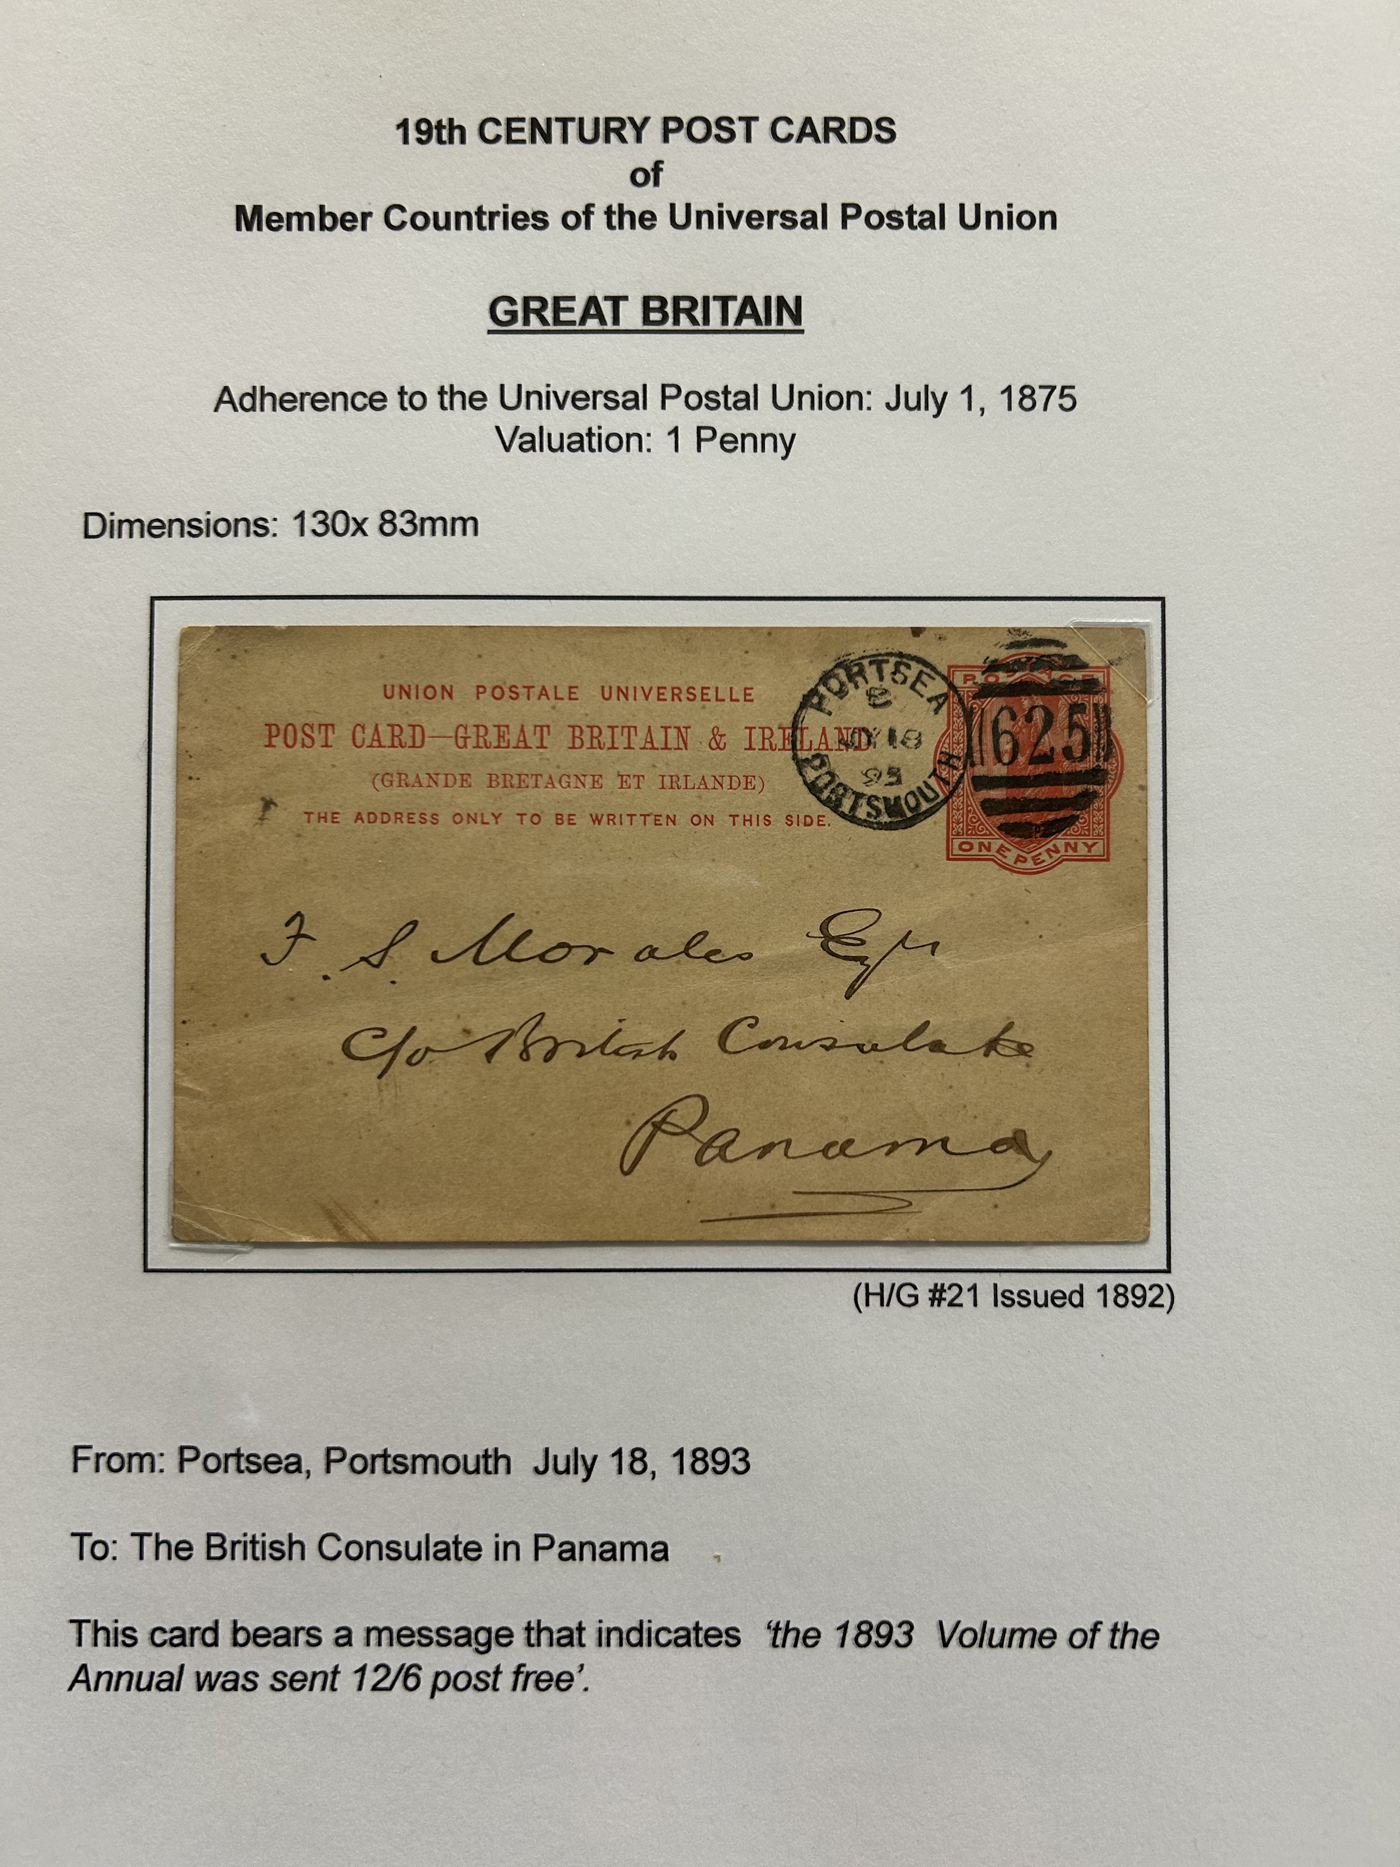 19th CENTURY POST CARDS
of
Member Countries of the Universal Postal Union
GREAT BRITAIN
Adherence to the Universal Postal Union: July 1, 1875
Valuation: 1 Penny
Dimensions: 130x 83mm
UNION POSTALE UNIVERSELLE
POST CARD—GREAT BRITAIN & IRELAND
(GRANDE BRETAGNE ET IRLANDE)
THE ADDRESS ONLY TO BE WRITTEN ON THIS SIDE.
PORTSEA
JY 18
93
PORTSMOUTH
625
ONE PENNY
F. S. Morales Esqr
c/o British Consulate
Panama
(H/G #21 Issued 1892)
From: Portsea, Portsmouth July 18, 1893
To: The British Consulate in Panama
This card bears a message that indicates ‘the 1893 Volume of the
Annual was sent 12/6 post free’.